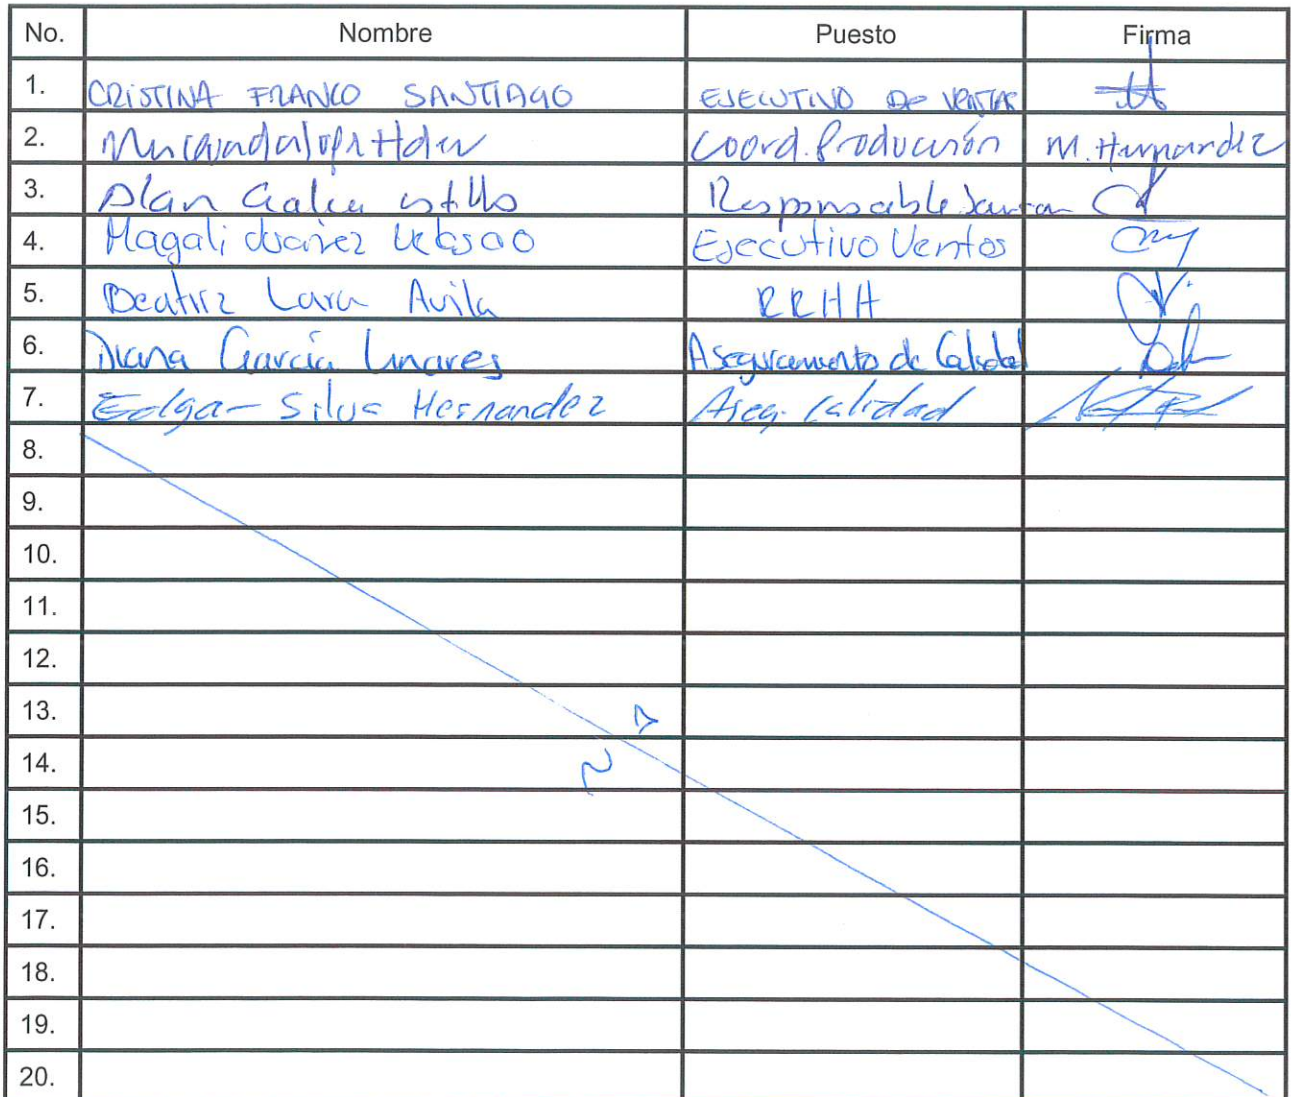 No. Nombre Puesto Firma
1. CRISTINA FRANCO SANTIAGO EJECUTIVO DE VENTAS
2. Hdez Coord. Producción M. Hernandez
3. Alan Responsable
4. Magali Suarez Velasco Ejecutivo Ventas
5. Beatriz Lara Avila RRHH
6. Diana García Linares Aseguramiento de Calidad
7. Edgar Silva Hernandez Aseg. Calidad
8.
9.
10.
11.
12.
13.
14.
15.
16.
17.
18.
19.
20.